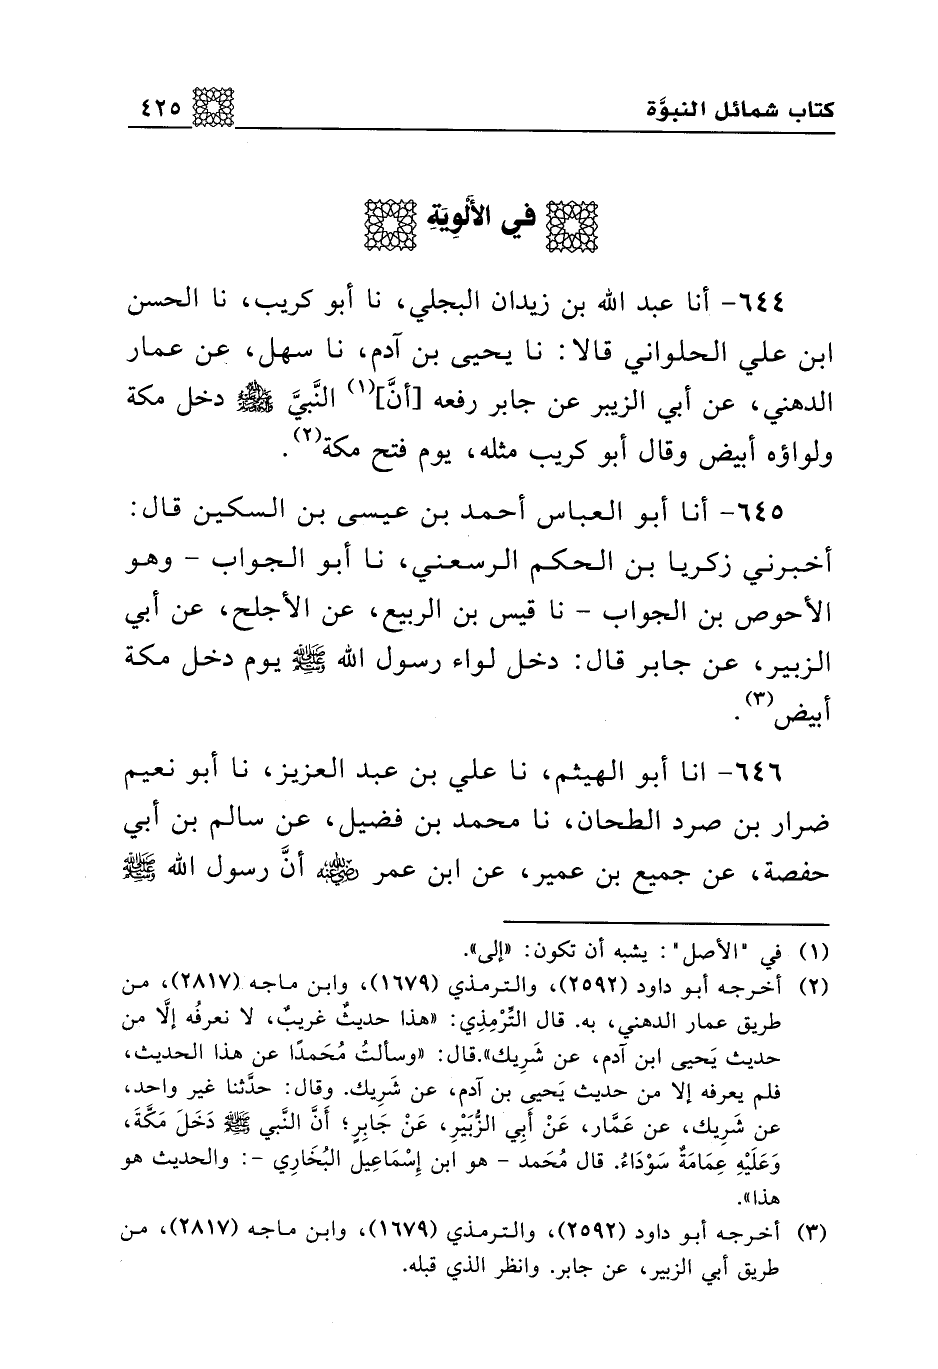 كتاب شمائل النبوَّة ٤٢٥
في الأَلْوِيَةِ
٦٤٤- أنا عبد الله بن زيدان البجلي، نا أبو كريب، نا الحسن
ابن علي الحلواني قالا: نا يحيى بن آدم، نا سهل، عن عمار
الدهني، عن أبي الزبير عن جابر رفعه [أنَّ](١) النَّبيَّ ﷺ دخل مكة
ولواؤه أبيض وقال أبو كريب مثله، يوم فتح مكة(٢).
٦٤٥- أنا أبو العباس أحمد بن عيسى بن السكين قال:
أخبرني زكريا بن الحكم الرسعني، نا أبو الجواب - وهو
الأحوص بن الجواب - نا قيس بن الربيع، عن الأجلح، عن أبي
الزبير، عن جابر قال: دخل لواء رسول الله ﷺ يوم دخل مكة
أبيض(٣).
٦٤٦- انا أبو الهيثم، نا علي بن عبد العزيز، نا أبو نعيم
ضرار بن صرد الطحان، نا محمد بن فضيل، عن سالم بن أبي
حفصة، عن جميع بن عمير، عن ابن عمر رضي الله عنه أنَّ رسول الله ﷺ
(١) في "الأصل": يشبه أن تكون: «إلى».
(٢) أخرجه أبو داود (٢٥٩٢)، والترمذي (١٦٧٩)، وابن ماجه (٢٨١٧)، من
طريق عمار الدهني، به. قال التِّرْمِذِي: «هذا حديثٌ غريبٌ، لا نعرفُه إلَّا من
حديث يَحيى ابن آدم، عن شَرِيك».قال: «وسألتُ مُحَمدًا عن هذا الحديث،
فلم يعرفه إلا من حديث يَحيى بن آدم، عن شَرِيك. وقال: حدَّثنا غير واحد،
عن شَرِيك، عن عَمَّار، عَنْ أَبِي الزُّبَيْرِ، عَنْ جَابِرٍ؛ أَنَّ النَّبي ﷺ دَخَلَ مَكَّةَ،
وَعَلَيْهِ عِمَامَةٌ سَوْدَاءُ. قال مُحَمد - هو ابن إِسْمَاعِيل البُخَاري -: والحديث هو
هذا».
(٣) أخرجه أبو داود (٢٥٩٢)، والترمذي (١٦٧٩)، وابن ماجه (٢٨١٧)، من
طريق أبي الزبير، عن جابر. وانظر الذي قبله.